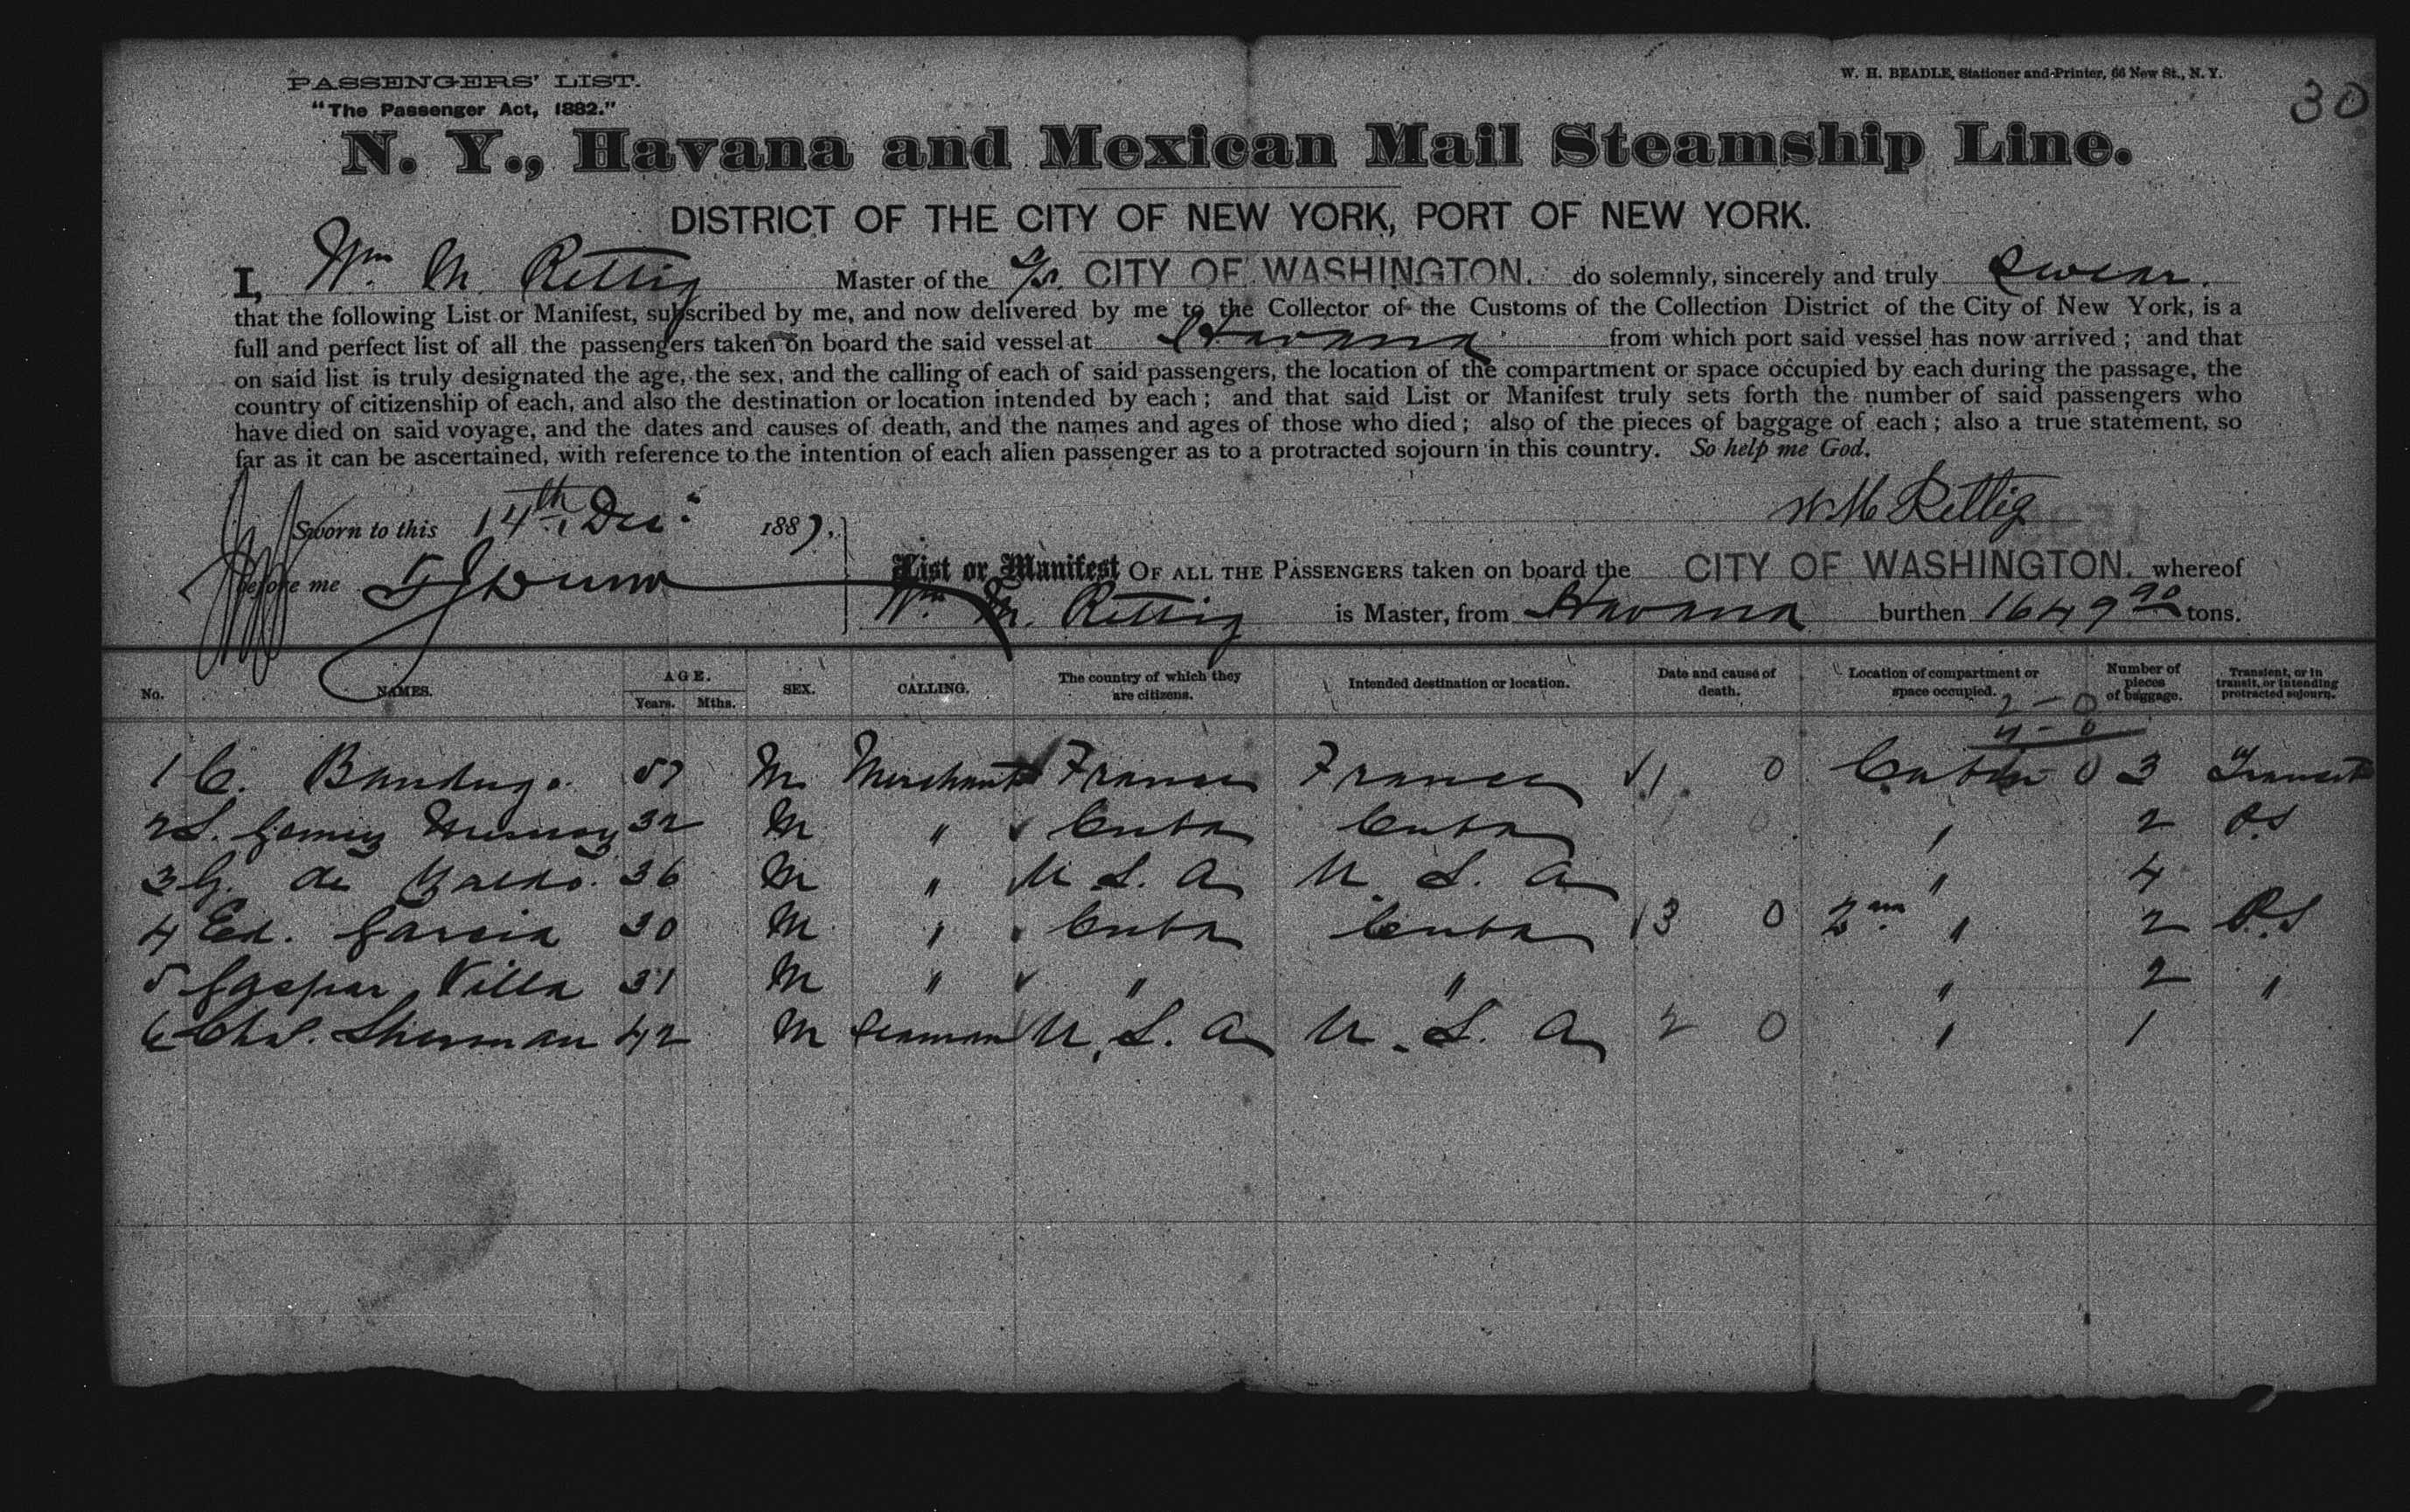 PASSENGERS' LIST.
"The Passenger Act, 1882."
W. H. BEADLE, Stationer and Printer, 66 New St., N. Y.
30
N. Y., Havana and Mexican Mail Steamship Line.
DISTRICT OF THE CITY OF NEW YORK, PORT OF NEW YORK.
I, Wm M. Rettig Master of the S/S. CITY OF WASHINGTON. do solemnly, sincerely and truly Swear.
that the following List or Manifest, subscribed by me, and now delivered by me to the Collector of the Customs of the Collection District of the City of New York, is a
full and perfect list of all the passengers taken on board the said vessel at Havana from which port said vessel has now arrived; and that
on said list is truly designated the age, the sex, and the calling of each of said passengers, the location of the compartment or space occupied by each during the passage, the
country of citizenship of each, and also the destination or location intended by each; and that said List or Manifest truly sets forth the number of said passengers who
have died on said voyage, and the dates and causes of death, and the names and ages of those who died; also of the pieces of baggage of each; also a true statement, so
far as it can be ascertained, with reference to the intention of each alien passenger as to a protracted sojourn in this country. So help me God.
W M Rettig
Sworn to this 14th Dec: 1887.
before me
List or Manifest OF ALL THE PASSENGERS taken on board the CITY OF WASHINGTON. whereof
Wm M. Rettig is Master, from Havana burthen 1649 90 tons.
No. NAMES. AGE. Years. Mths. SEX. CALLING. The country of which they are citizens. Intended destination or location. Date and cause of death. Location of compartment or space occupied. Number of pieces of baggage. Transient, or in transit, or intending protracted sojourn.
2 - 0
4 - 0
1 C. 57 M Merchant France France 1 0 Cabin 0 3 Transit
2 S. Gomez 32 M " Cuba Cuba " 2 P.S
3 G. de 36 M " U. S. A U. S. A " 4
4 Ed. Garcia 30 M " Cuba Cuba 3 0 2nd " 2 P.S
5 Gaspar Villa 31 M " " " " 2 "
6 Chas. Sherman 42 M Seaman U. S. A U. S. A 2 0 " 1